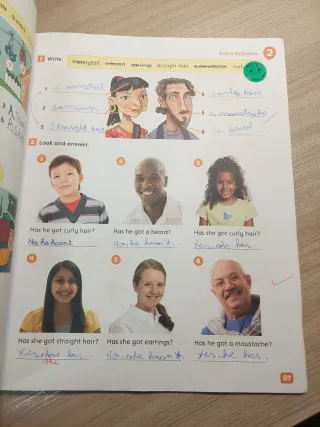 Extra Activities 2
1 Write.
a ponytail a beard earrings straight hair a moustache
1 a ponytail
2 earrings
3 Straight hair
4 curly hair
5 a moustache
6 a beard
2 Look and answer.
1
2
3
Has he got curly hair?
Has he got a beard?
Has she got curly hair?
No, he hasn't.
No, he hasn't.
Yes, she has.
4
5
6
Has she got straight hair?
Has she got earrings?
Has he got a moustache?
Yes, she has.
No, she hasn't.
Yes, he has.
she
97